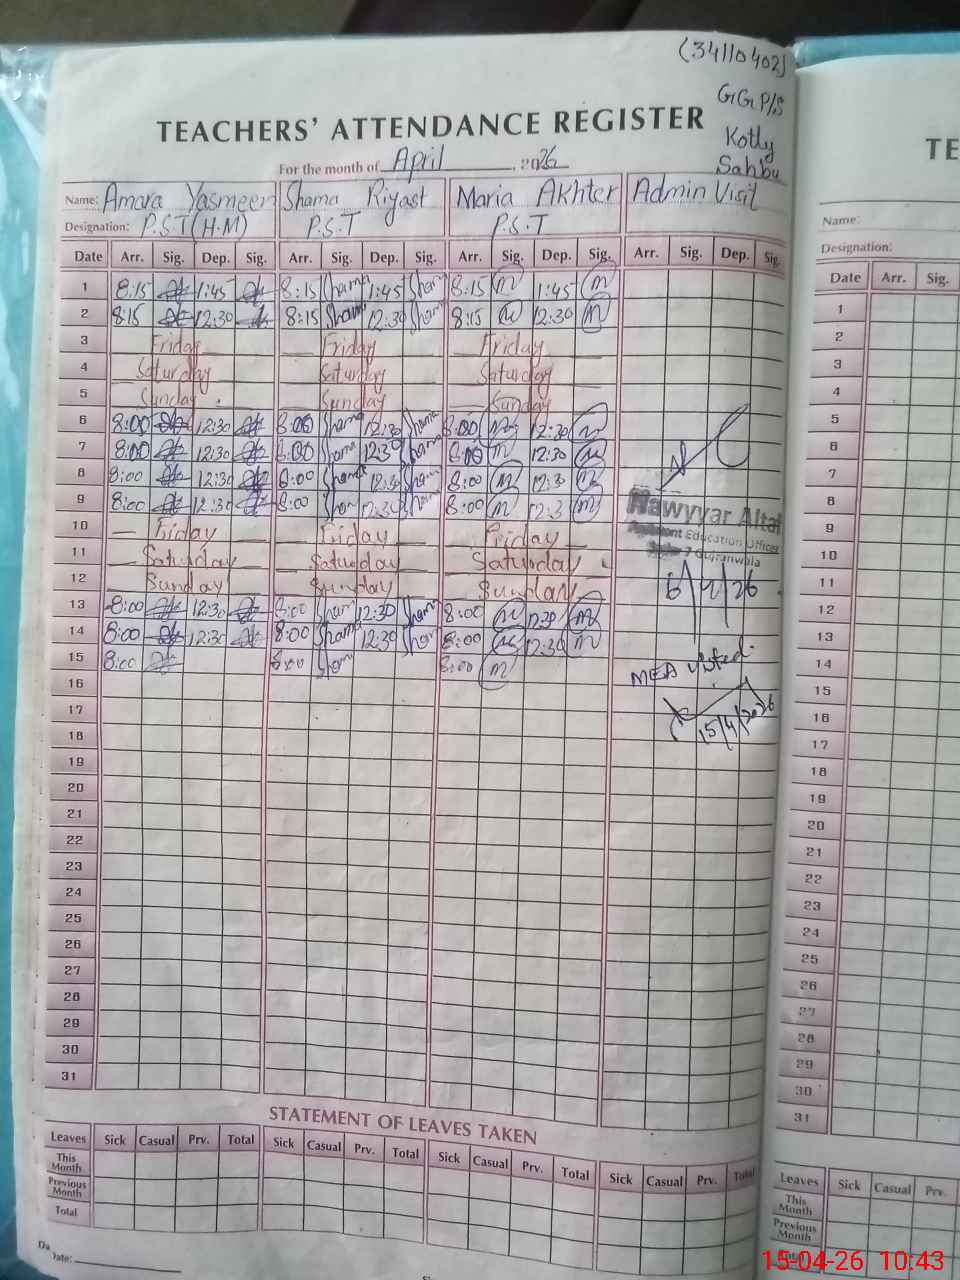 (34110402)
GGP/S
Kotly
Sahbu
TEACHERS' ATTENDANCE REGISTER
For the month of April, 2026
Name: Amara Yasmeen Shama Riyast Maria Akhter Admin Visit
Designation: P.S.T (H.M) P.S.T P.S.T
Date Arr. Sig. Dep. Sig. Arr. Sig. Dep. Sig. Arr. Sig. Dep. Sig. Arr. Sig. Dep. Sig.
1 8:15 1:45 8:15 Shama 1:45 Sham 8:15 m 1:45 m
2 8:15 12:30 8:15 Shama 12:30 Sham 8:15 m 12:30 m
3 Friday Friday Friday
4 Saturday Saturday Saturday
5 Sunday Sunday Sunday
6 8:00 12:30 8:00 Shama 12:30 Shama 8:00 m 12:30 m
7 8:00 12:30 8:00 Shama 12:30 Shama 8:00 m 12:30 m
8 8:00 12:30 8:00 Shama 12:30 Sham 8:00 m 12:3 m
9 8:00 12:30 8:00 Sham 12:30 Shama 8:00 m 12:3 m
Nawyyar Altaf
Assistant Education Officer
7 Gujranwala
10 Friday Friday Friday
11 Saturday Saturday Saturday
12 Sunday Sunday Sunday
6/4/26
13 8:00 12:30 8:00 Sham 12:30 Shama 8:00 m 12:30 m
14 8:00 12:30 8:00 Shama 12:30 Sham 8:00 m 12:30 m
15 8:00 8:00 Sham 8:00 m
MEA visited.
15/4/2026
16
17
18
19
20
21
22
23
24
25
26
27
28
29
30
31
STATEMENT OF LEAVES TAKEN
Leaves Sick Casual Prv. Total Sick Casual Prv. Total Sick Casual Prv. Total Sick Casual Prv. Total
This Month
Previous Month
Total
Date:
TE
Name:
Designation:
Date Arr. Sig.
1
2
3
4
5
6
7
8
9
10
11
12
13
14
15
16
17
18
19
20
21
22
23
24
25
26
27
28
29
30
31
Leaves Sick Casual Prv.
This Month
Previous Month
Total
15-04-26 10:43